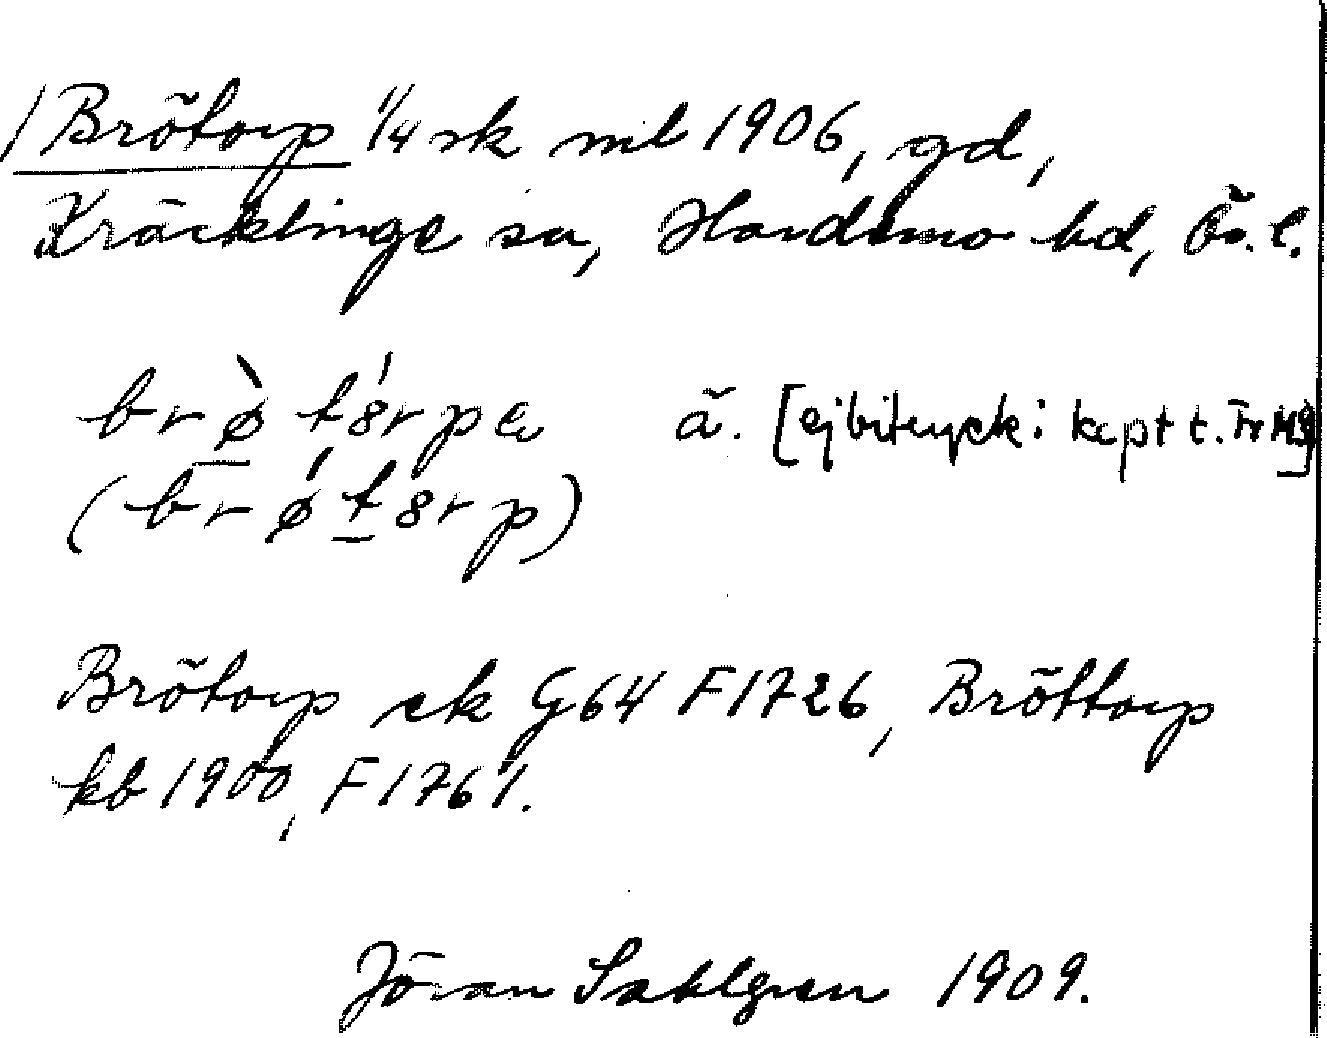 / Brötorp 1/4 sk ml 1906, gd,
Kräcklinge sn, Hardemo hd, Ör. l.
brø̀tórpa ä. [ej bitryck: kept t. Fr M9]
(brǿtorp)
Brötorp ek G64 F1726, Bröttorp
kb 1900, F1761.
Jöran Sahlgren 1909.